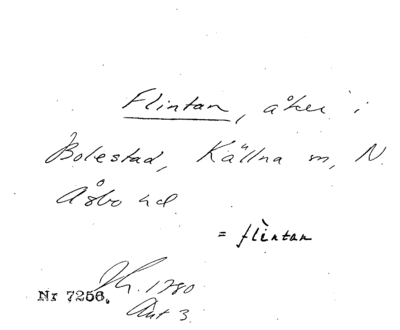 Flintan, åker i
Bolestad, Källna sn, N.
Åsbo hd.
= flìntan
Nr 7256.
1780
Akt 3.